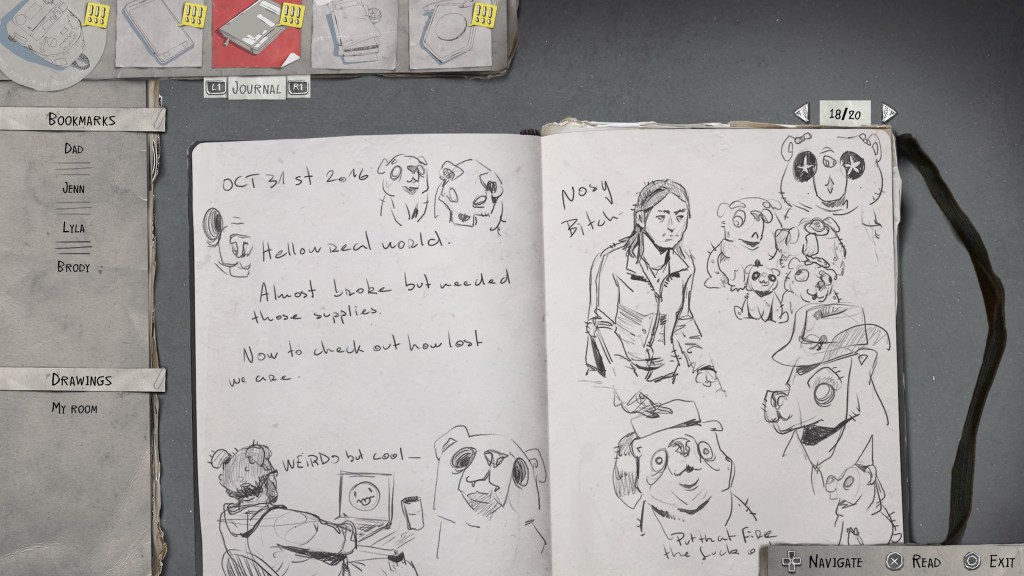 L1 JOURNAL R1
BOOKMARKS
DAD
JENN
LYLA
BRODY
DRAWINGS
MY ROOM
18/20
OCT 31 st 2016
Hello real world.
Almost broke but needed
those supplies.
Now to check out how lost
we are.
WEIRDS but cool
Nosy
Bitch
Put that Fire
the fuck o
NAVIGATE
READ
EXIT